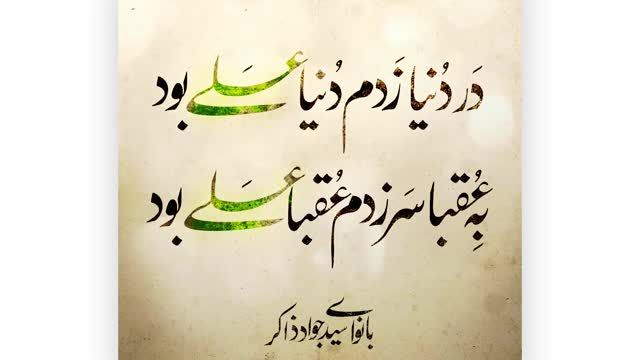 دَر دُنیا زَدم دُنیا عَلی بود
بِه عُقبا سَرزدم عُقبا عَلی بود
بانوای سیدجواد ذاکر